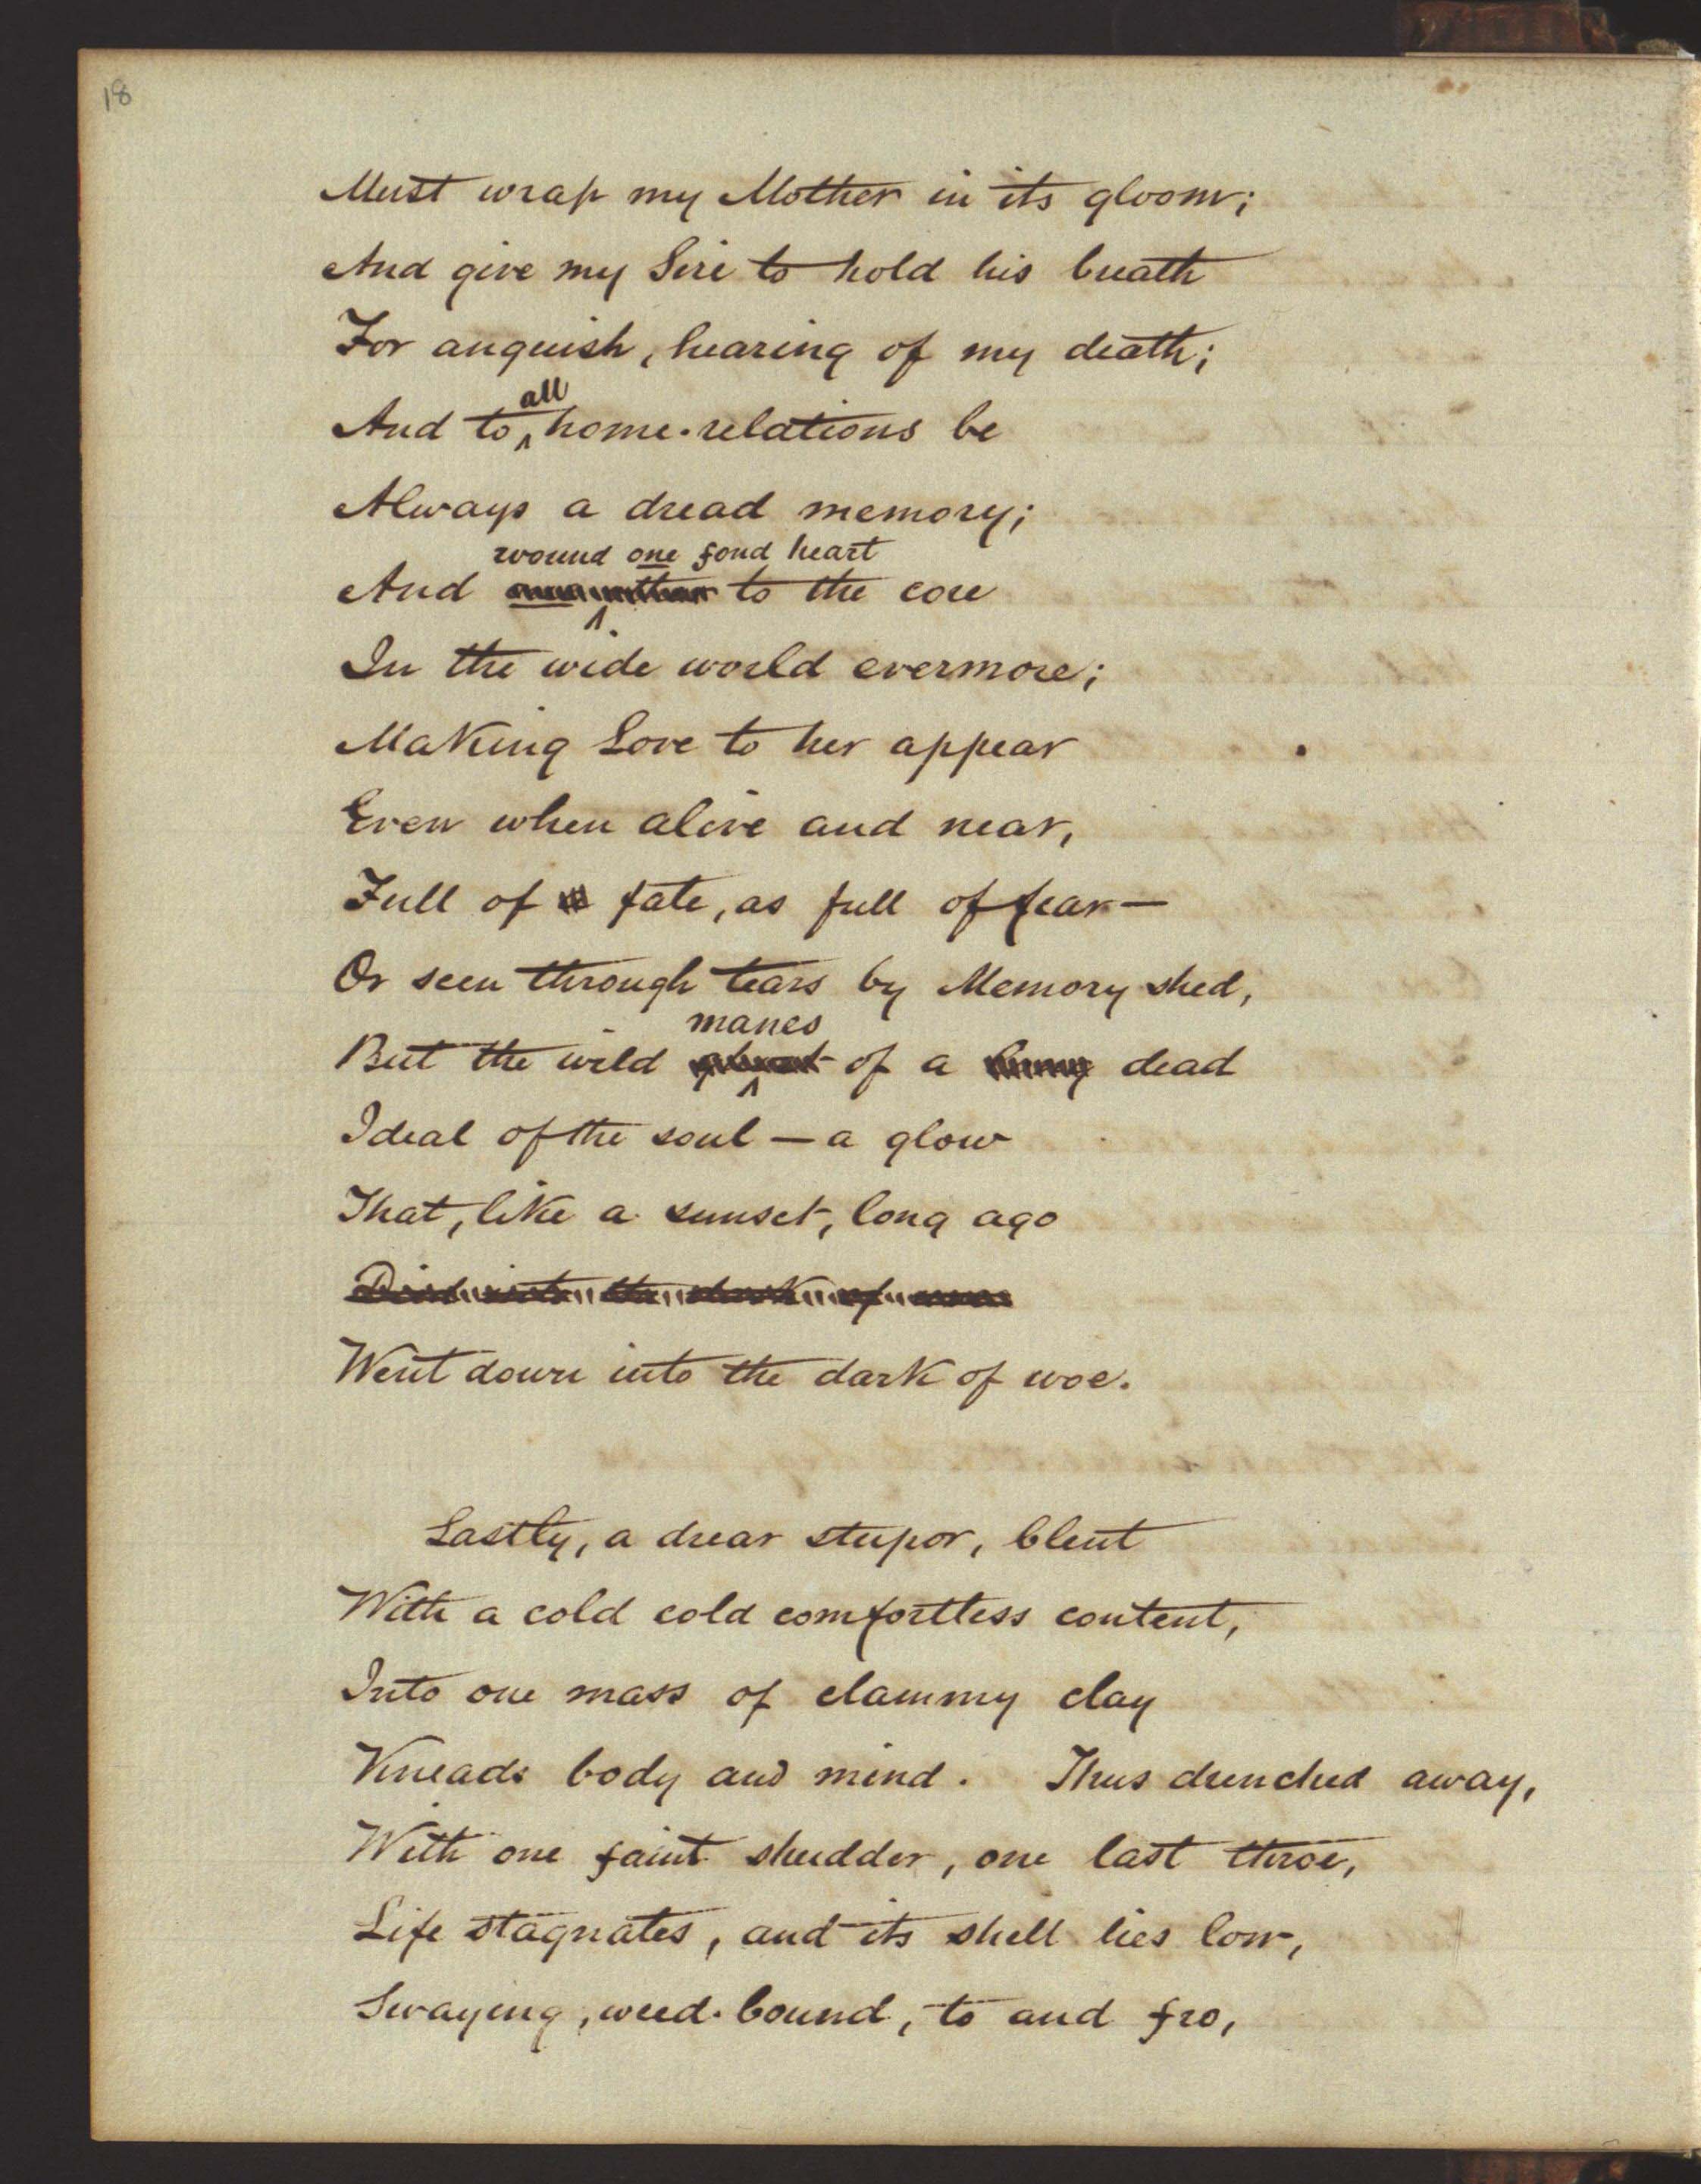 18
Must wrap my Mother in its gloom;
And give my Sire to hold his breath
For anguish, hearing of my death;
all
And to home-relations be
Always a dread memory;
wound one fond heart
And to the core
In the wide world evermore;
Making Love to her appear
Even when alive and near,
Full of fate, as full of fear—
Or seen through tears by Memory shed,
manes
But the wild ghost of a dead
Ideal of the soul — a glow
That, like a sunset, long ago
Died into the dark of
Went down into the dark of woe.
Lastly, a drear stupor, blent
With a cold cold comfortless content,
Into one mass of clammy clay
Kneads body and mind. Thus drenched away,
With one faint shudder, one last throe,
Life stagnates, and its shell lies low,
Swaying, weed-bound, to and fro,